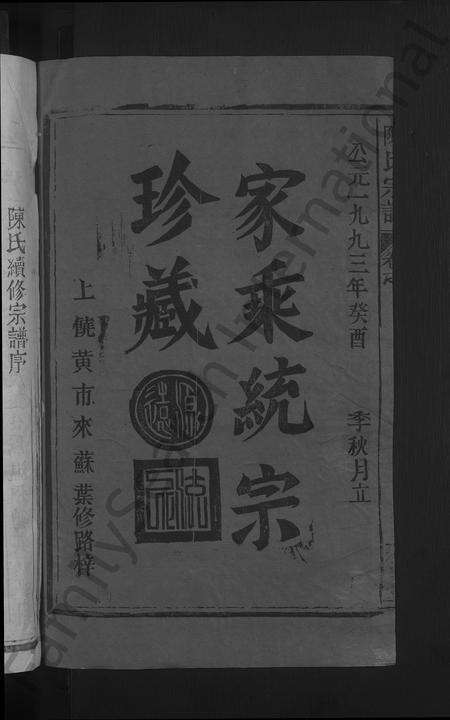 陳氏宗譜
公元一九九三年癸酉 季秋月立
家乘統宗
珍藏
源遠
流長
上饒黃市來蘇葉修路梓
陳氏續修宗譜序
FamilySearch International